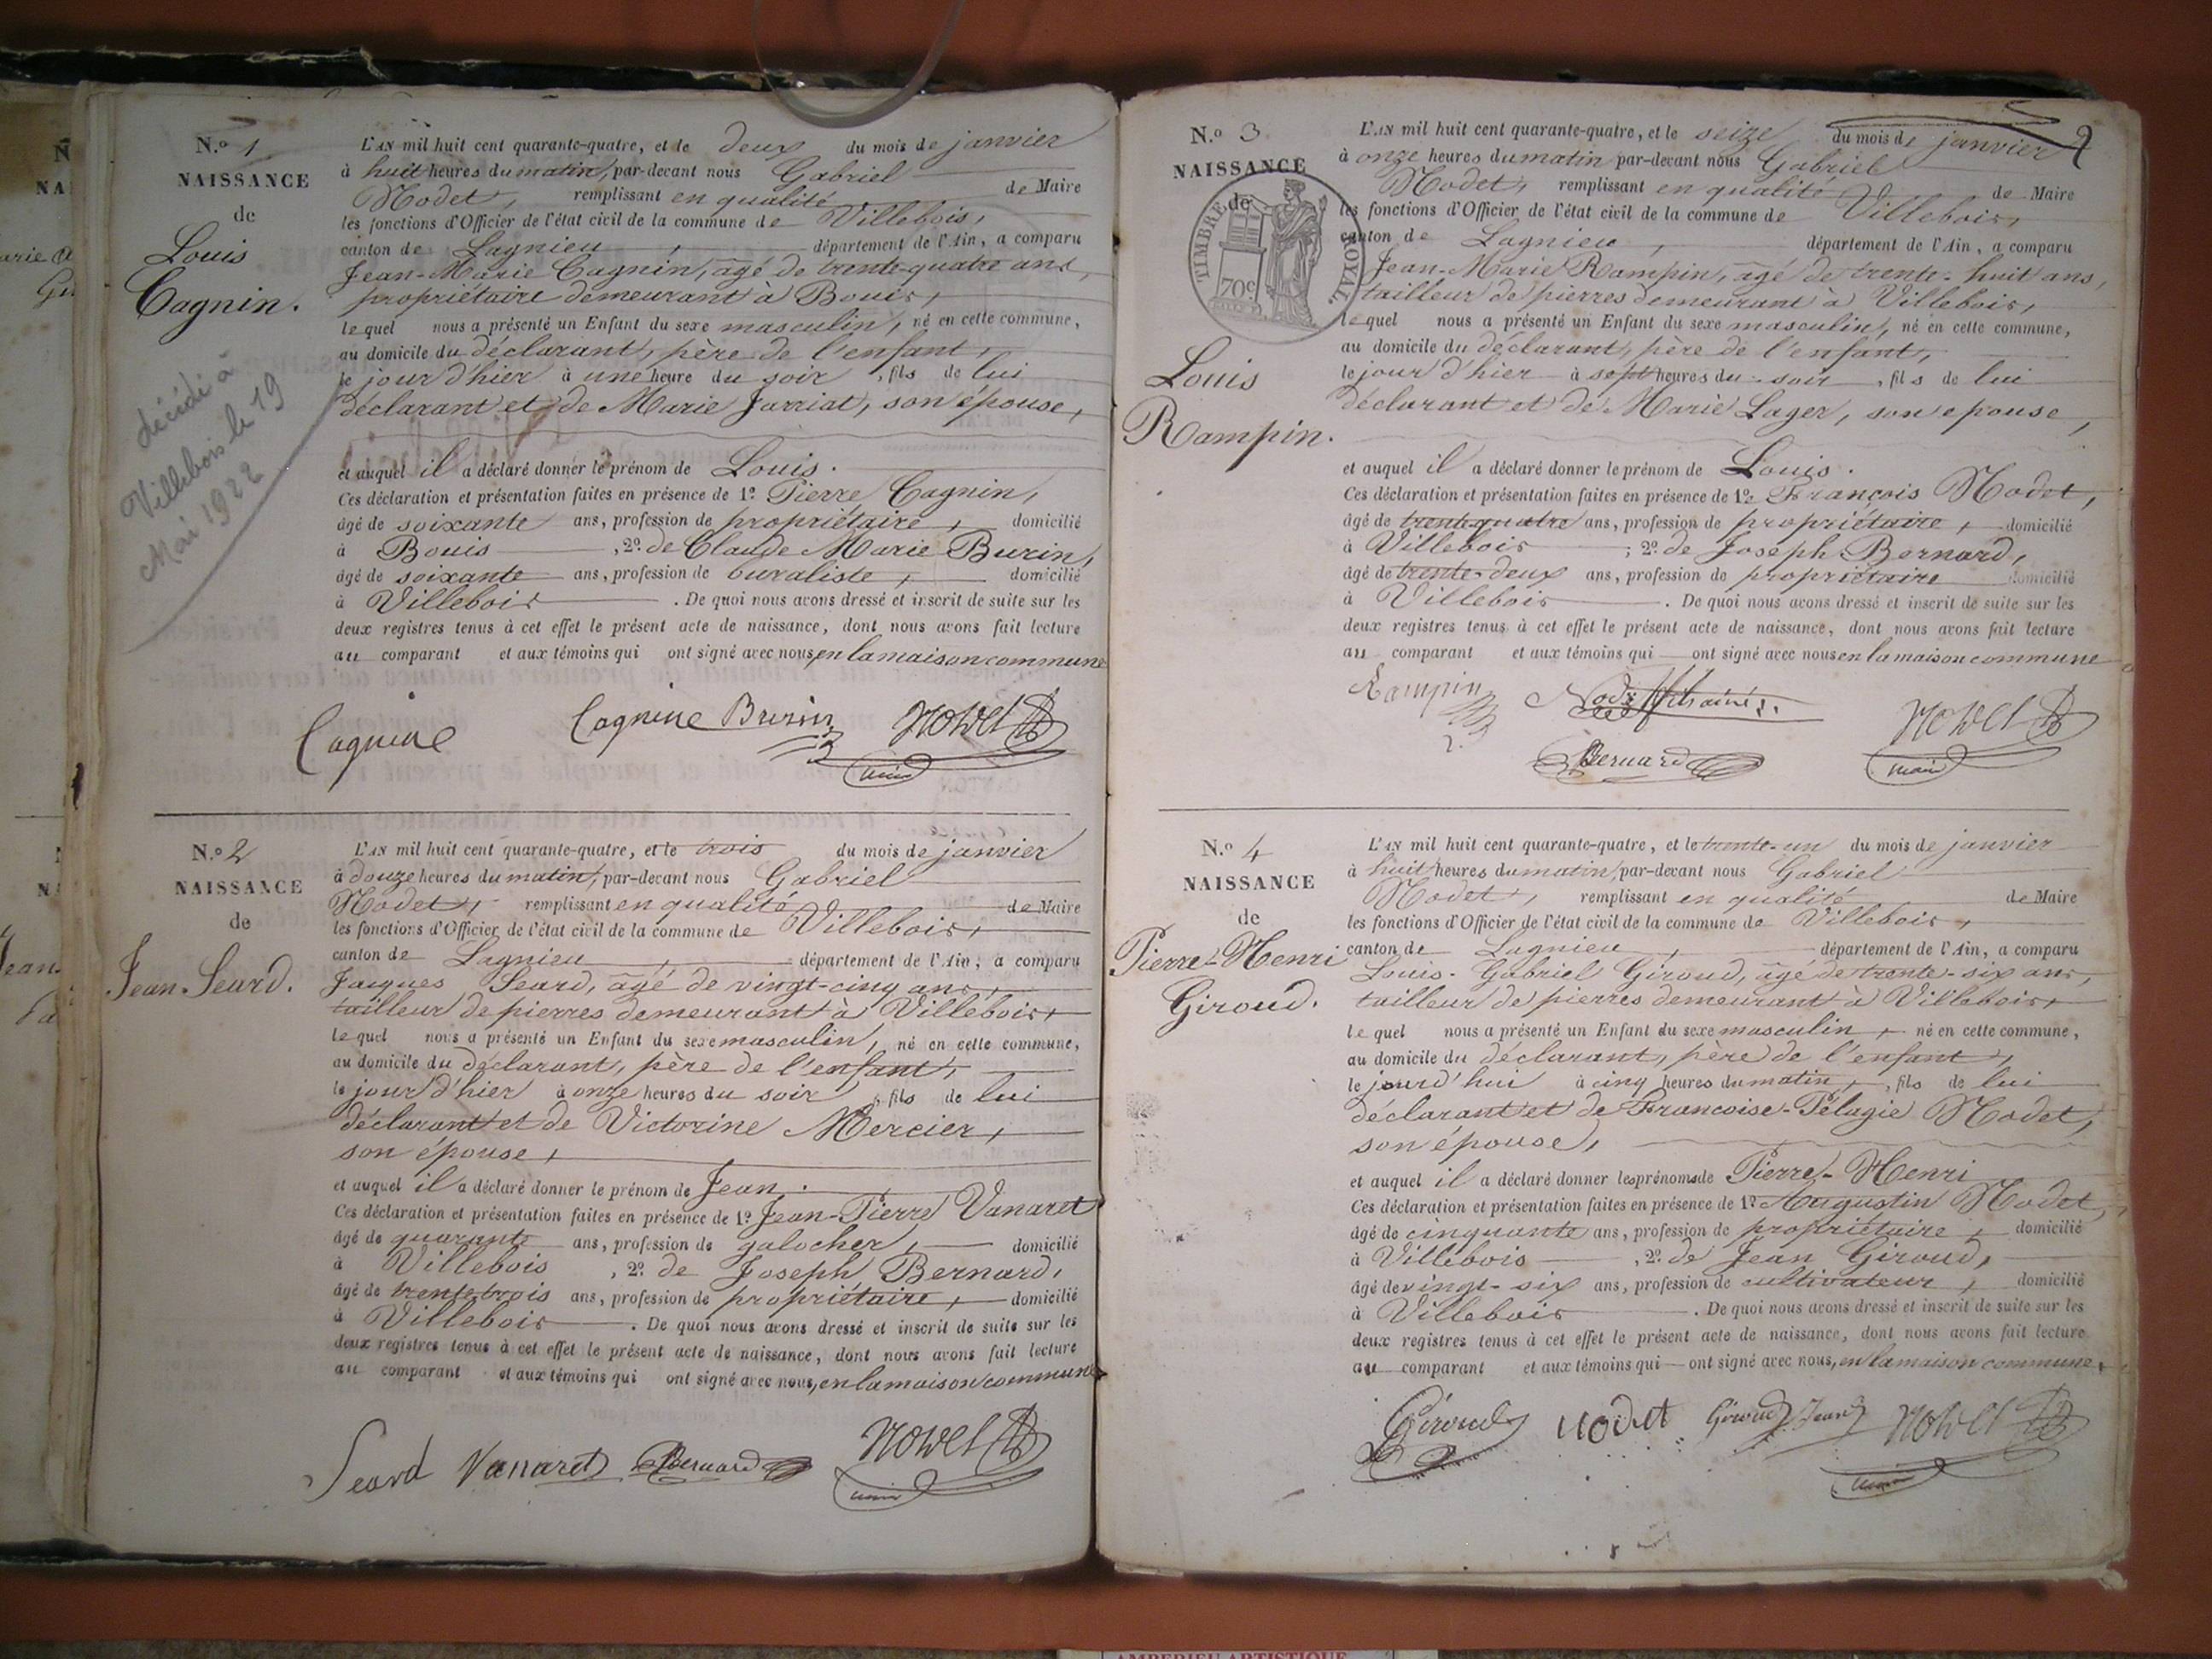 N.o 1
NAISSANCE
de
Louis
Cagnin.
décédé à
Villebois le 19
Mai 1922
L'AN mil huit cent quarante-quatre, et le deux du mois de janvier
à huit heures du matin, par-devant nous Gabriel
Nodet, remplissant en qualité de Maire
les fonctions d'Officier de l'état civil de la commune de Villebois,
canton de Lagnieu, département de l'Ain, a comparu
Jean-Marie Cagnin, âgé de trente-quatre ans,
propriétaire demeurant à Bouis,
lequel nous a présenté un Enfant du sexe masculin, né en cette commune,
au domicile du déclarant, père de l'enfant,
le jour d'hier à une heure du soir, fils de lui
déclarant et de Marie Jarriat, son épouse,
et auquel il a déclaré donner le prénom de Louis.
Ces déclaration et présentation faites en présence de 1.o Pierre Cagnin,
âgé de soixante ans, profession de propriétaire, domicilié
à Bouis, 2.o de Claude Marie Burin,
âgé de soixante ans, profession de buraliste, domicilié
à Villebois. De quoi nous avons dressé et inscrit de suite sur les
deux registres tenus à cet effet le présent acte de naissance, dont nous avons fait lecture
au comparant et aux témoins qui ont signé avec nous, en la maison commune
Cagnine Cagnine Burin Nodet
maire
N.o 2
NAISSANCE
de
Jean Seard.
L'AN mil huit cent quarante-quatre, et le trois du mois de janvier
à douze heures du matin, par-devant nous Gabriel
Nodet, remplissant en qualité de Maire
les fonctions d'Officier de l'état civil de la commune de Villebois,
canton de Lagnieu, département de l'Ain, a comparu
Jacques Seard, âgé de vingt-cinq ans,
tailleur de pierres demeurant à Villebois,
lequel nous a présenté un Enfant du sexe masculin, né en cette commune,
au domicile du déclarant, père de l'enfant,
le jour d'hier à onze heures du soir, fils de lui
déclarant et de Victorine Mercier,
son épouse,
et auquel il a déclaré donner le prénom de Jean.
Ces déclaration et présentation faites en présence de 1.o Jean-Pierre Vanaret
âgé de quarante ans, profession de galocher, domicilié
à Villebois, 2.o de Joseph Bernard,
âgé de trente trois ans, profession de propriétaire, domicilié
à Villebois. De quoi nous avons dressé et inscrit de suite sur les
deux registres tenus à cet effet le présent acte de naissance, dont nous avons fait lecture
au comparant et aux témoins qui ont signé avec nous, en la maison commune
Seard Vanaret Bernard Nodet
maire
2
N.o 3
NAISSANCE
de
TIMBRE ROYAL
70c
Louis
Rampin.
L'AN mil huit cent quarante-quatre, et le seize du mois de janvier
à onze heures du matin par-devant nous Gabriel
Nodet, remplissant en qualité de Maire
les fonctions d'Officier de l'état civil de la commune de Villebois,
canton de Lagnieu, département de l'Ain, a comparu
Jean-Marie Rampin, âgé de trente-huit ans,
tailleur de pierres demeurant à Villebois,
lequel nous a présenté un Enfant du sexe masculin, né en cette commune,
au domicile du déclarant, père de l'enfant,
le jour d'hier à sept heures du soir, fils de lui
déclarant et de Marie Lager, son epouse,
et auquel il a déclaré donner le prénom de Louis.
Ces déclaration et présentation faites en présence de 1.o François Nodet,
âgé de trente quatre ans, profession de propriétaire, domicilié
à Villebois; 2.o de Joseph Bernard,
âgé de trente-deux ans, profession de propriétaire domicilié
à Villebois. De quoi nous avons dressé et inscrit de suite sur les
deux registres tenus à cet effet le présent acte de naissance, dont nous avons fait lecture
au comparant et aux témoins qui ont signé avec nous en la maison commune
Rampin Nodet
Nodet
Bernard
maire
N.o 4
NAISSANCE
de
Pierre-Henri
Giroud.
L'AN mil huit cent quarante-quatre, et le trente-un du mois de janvier
à huit heures du matin, par-devant nous Gabriel
Nodet, remplissant en qualité de Maire
les fonctions d'Officier de l'état civil de la commune de Villebois,
canton de Lagnieu, département de l'Ain, a comparu
Louis-Gabriel Giroud, âgé de trente-six ans,
tailleur de pierres demeurant à Villebois,
lequel nous a présenté un Enfant du sexe masculin, né en cette commune,
au domicile du déclarant, père de l'enfant,
le jourd'hui à cinq heures du matin, fils de lui
déclarant et de Francoise-Pélagie Nodet,
son épouse,
et auquel il a déclaré donner les prénoms de Pierre-Henri
Ces déclaration et présentation faites en présence de 1.o Augustin Nodet,
âgé de cinquante ans, profession de propriétaire, domicilié
à Villebois, 2.o de Jean Giroud,
âgé de vingt-six ans, profession de cultivateur, domicilié
à Villebois. De quoi nous avons dressé et inscrit de suite sur les
deux registres tenus à cet effet le présent acte de naissance, dont nous avons fait lecture
au comparant et aux témoins qui ont signé avec nous, en la maison commune,
Giroud Nodet Giroud Jean Nodet
maire
AMBERIEU ARTISTIQUE